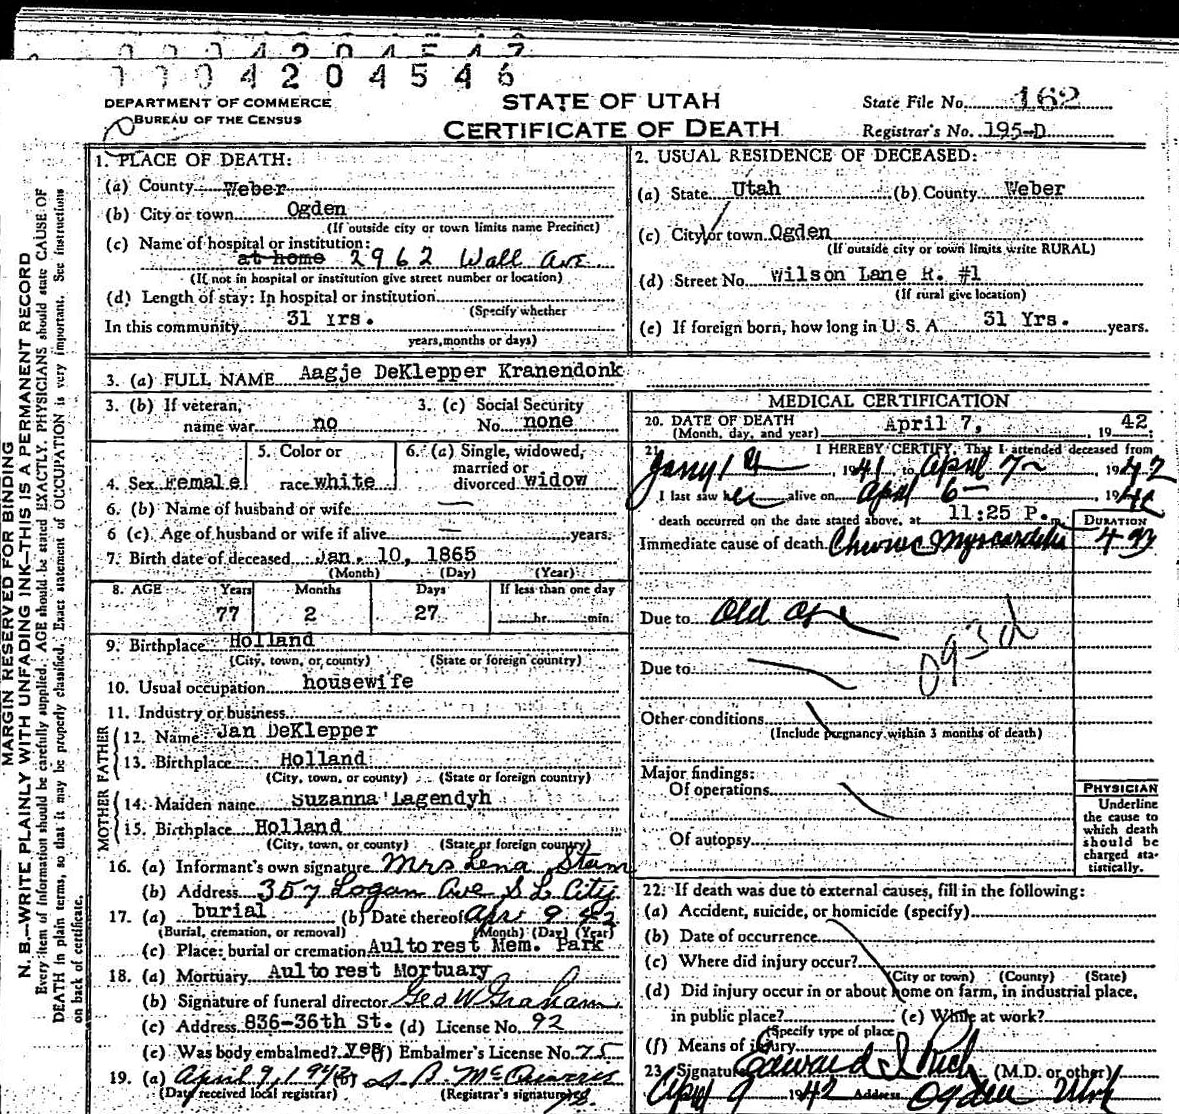 0 0 0 4 2 0 4 5 4 6
DEPARTMENT OF COMMERCE
BUREAU OF THE CENSUS
STATE OF UTAH
CERTIFICATE OF DEATH
State File No. 162
Registrar's No. 195-D
MARGIN RESERVED FOR BINDING
N. B.—WRITE PLAINLY WITH UNFADING INK—THIS IS A PERMANENT RECORD
Every item of information should be carefully supplied. AGE should be stated EXACTLY. PHYSICIANS should state CAUSE OF
DEATH in plain terms, so that it may be properly classified. Exact statement of OCCUPATION is very important. See instructions
on back of certificate.
1. PLACE OF DEATH:
(a) County Weber
(b) City or town Ogden
(If outside city or town limits name Precinct)
(c) Name of hospital or institution:
at home 2962 Wall Ave
(If not in hospital or institution give street number or location)
(d) Length of stay: In hospital or institution
(Specify whether
In this community 31 Yrs.
years, months or days)
2. USUAL RESIDENCE OF DECEASED:
(a) State Utah (b) County Weber
(c) City or town Ogden
(If outside city or town limits write RURAL)
(d) Street No. Wilson Lane R. #1
(If rural give location)
(e) If foreign born, how long in U. S. A. 31 Yrs. years.
3. (a) FULL NAME Aagje DeKlepper Kranendonk
3. (b) If veteran, name war no
3. (c) Social Security No. none
4. Sex Female
5. Color or race white
6. (a) Single, widowed, married or divorced widow
6. (b) Name of husband or wife —
6 (c). Age of husband or wife if alive — years.
7. Birth date of deceased Jan. 10, 1865
(Month) (Day) (Year)
8. AGE Years Months Days If less than one day
77 2 27 hr. min.
9. Birthplace Holland
(City, town, or county) (State or foreign country)
10. Usual occupation housewife
11. Industry or business
FATHER
12. Name Jan DeKlepper
13. Birthplace Holland
(City, town, or county) (State or foreign country)
MOTHER
14. Maiden name Suzanna Lagendyh
15. Birthplace Holland
(City, town, or county) (State or foreign country)
16. (a) Informant's own signature Mrs Lena Stam
(b) Address 357 Logan Ave S L City
17. (a) burial (b) Date thereof Apr 9 42
(Burial, cremation, or removal) (Month) (Day) (Year)
(c) Place: burial or cremation Aultorest Mem. Park
18. (a) Mortuary Aultorest Mortuary
(b) Signature of funeral director Geo W Graham
(c) Address 836-36th St. (d) License No. 92
(e) Was body embalmed? yes (f) Embalmer's License No. 75
19. (a) April 9, 1942 (b)
(Date received local registrar) (Registrar's signature)
MEDICAL CERTIFICATION
20. DATE OF DEATH April 7, 1942
(Month, day, and year)
21. I HEREBY CERTIFY, That I attended deceased from
1941 to April 7 — 1942
I last saw her alive on April 6 — 1942
death occurred on the date stated above, at 11:25 P. m.
DURATION
Immediate cause of death Chronic Myocarditis
Due to Old age
093d
Due to
Other conditions
(Include pregnancy within 3 months of death)
Major findings:
Of operations
Of autopsy
PHYSICIAN
Underline
the cause to
which death
should be
charged sta-
tistically.
22. If death was due to external causes, fill in the following:
(a) Accident, suicide, or homicide (specify)
(b) Date of occurrence
(c) Where did injury occur?
(City or town) (County) (State)
(d) Did injury occur in or about home on farm, in industrial place,
in public place? (e) While at work?
(Specify type of place
(f) Means of injury
23. Signature Edward I Rich (M.D. or other)
Apr 9 1942 Address Ogden Utah